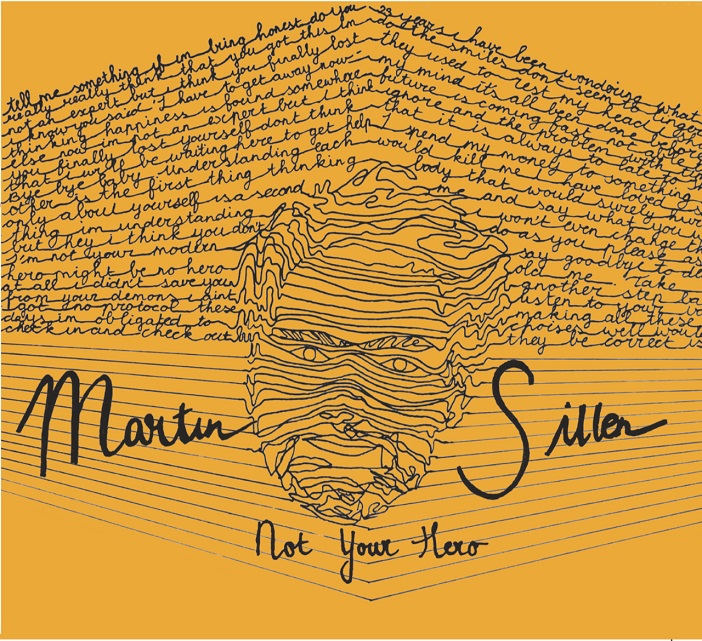 tell me something if im bring honest do you
really really think that you got this im
not an expert but i think you finally lost
i know you said i have to get away now
thinking happiness is found somewhere
else now im not an expert but i think
you finally lost yourself dont think
that i will be waiting here to get help
bye bye baby understanding each
other is the first thing thinking
ly about yourself is a second
thing im understanding
but hey i think you dont
i'm not your modern
hero might be no hero
at all i didn't save you
from your demons i aint
got no protocol these
days im obligated to
check in and check out
23 years i have been wondoring what
do the smiles dont seem to linger
they used to rest my head
my mind it's all been done
future is coming fast not
ignore and the problem with
that it is always to late to
I spend my money to something
would kill i have loved
body that would surely
me and say what you
i won't even change
do as you please as
say goodbye to
old me. Take
another step
listen to your
making all these
choises we'll
they be correct is
Martin Sillen
Not Your Hero